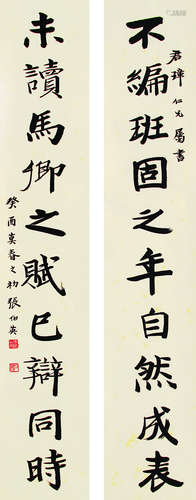 君璋仁兄屬書
不編班固之年自然成表
未讀馬卿之賦已辯同時
癸酉莫春之初張伯英